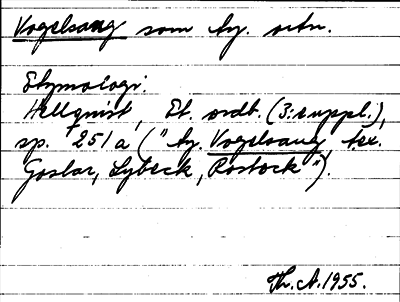 Vogelsang som ty. ortn.
Etymologi:
Hellquist, Et. ordb. (3:e uppl.),
sp. 1251 a ("ty. Vogelsang, t.ex.
Goslar, Lybeck, Rostock").
Th. A. 1955.